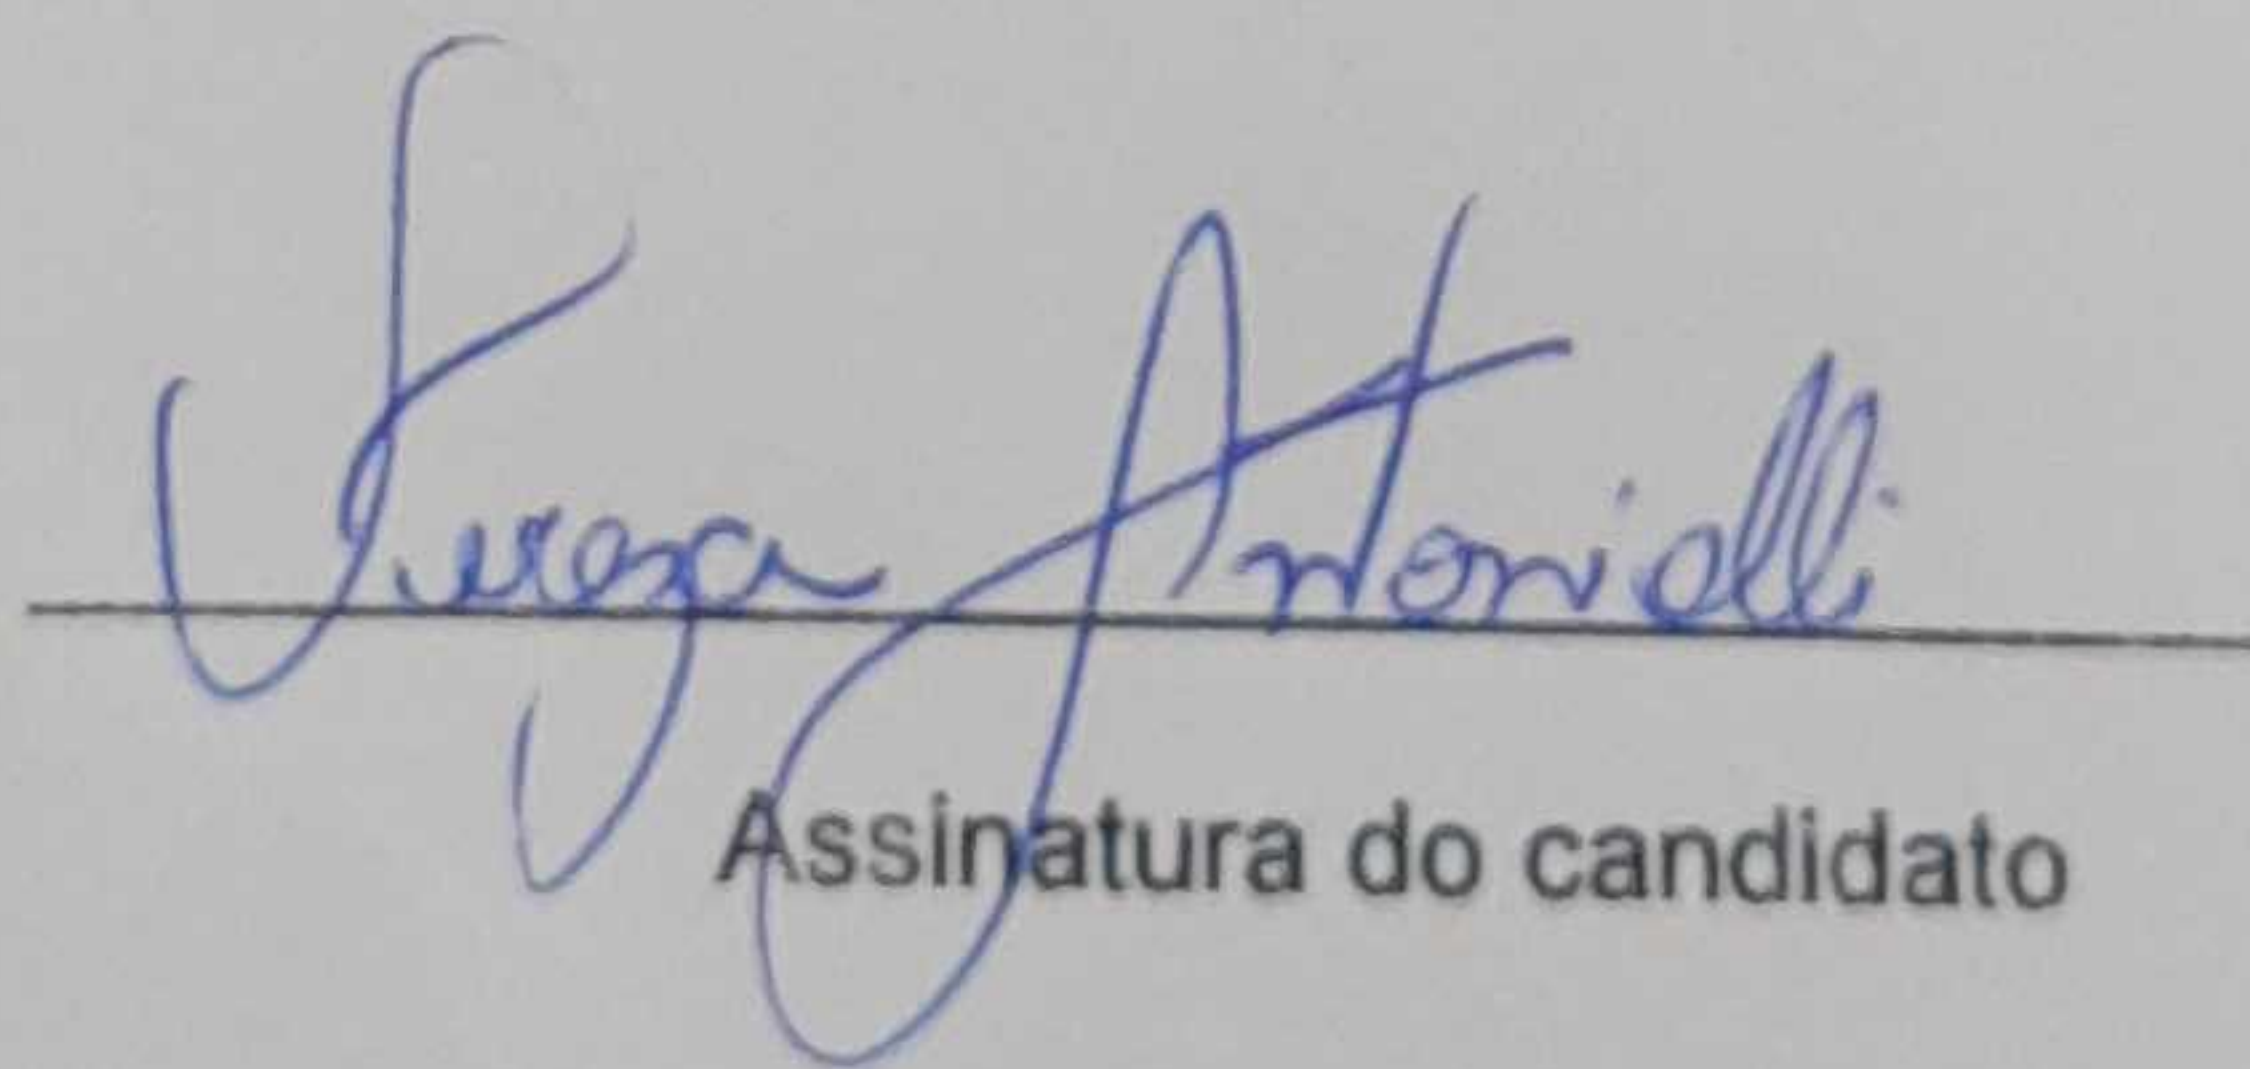 Tereza Antonielli
Assinatura do candidato